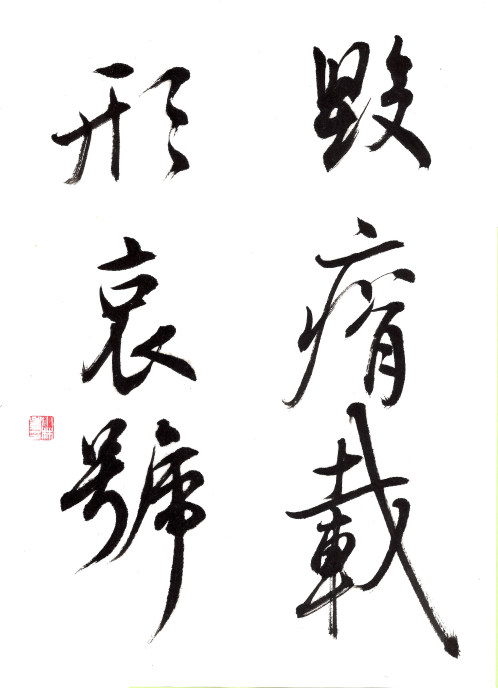 毀瘠載
形哀號